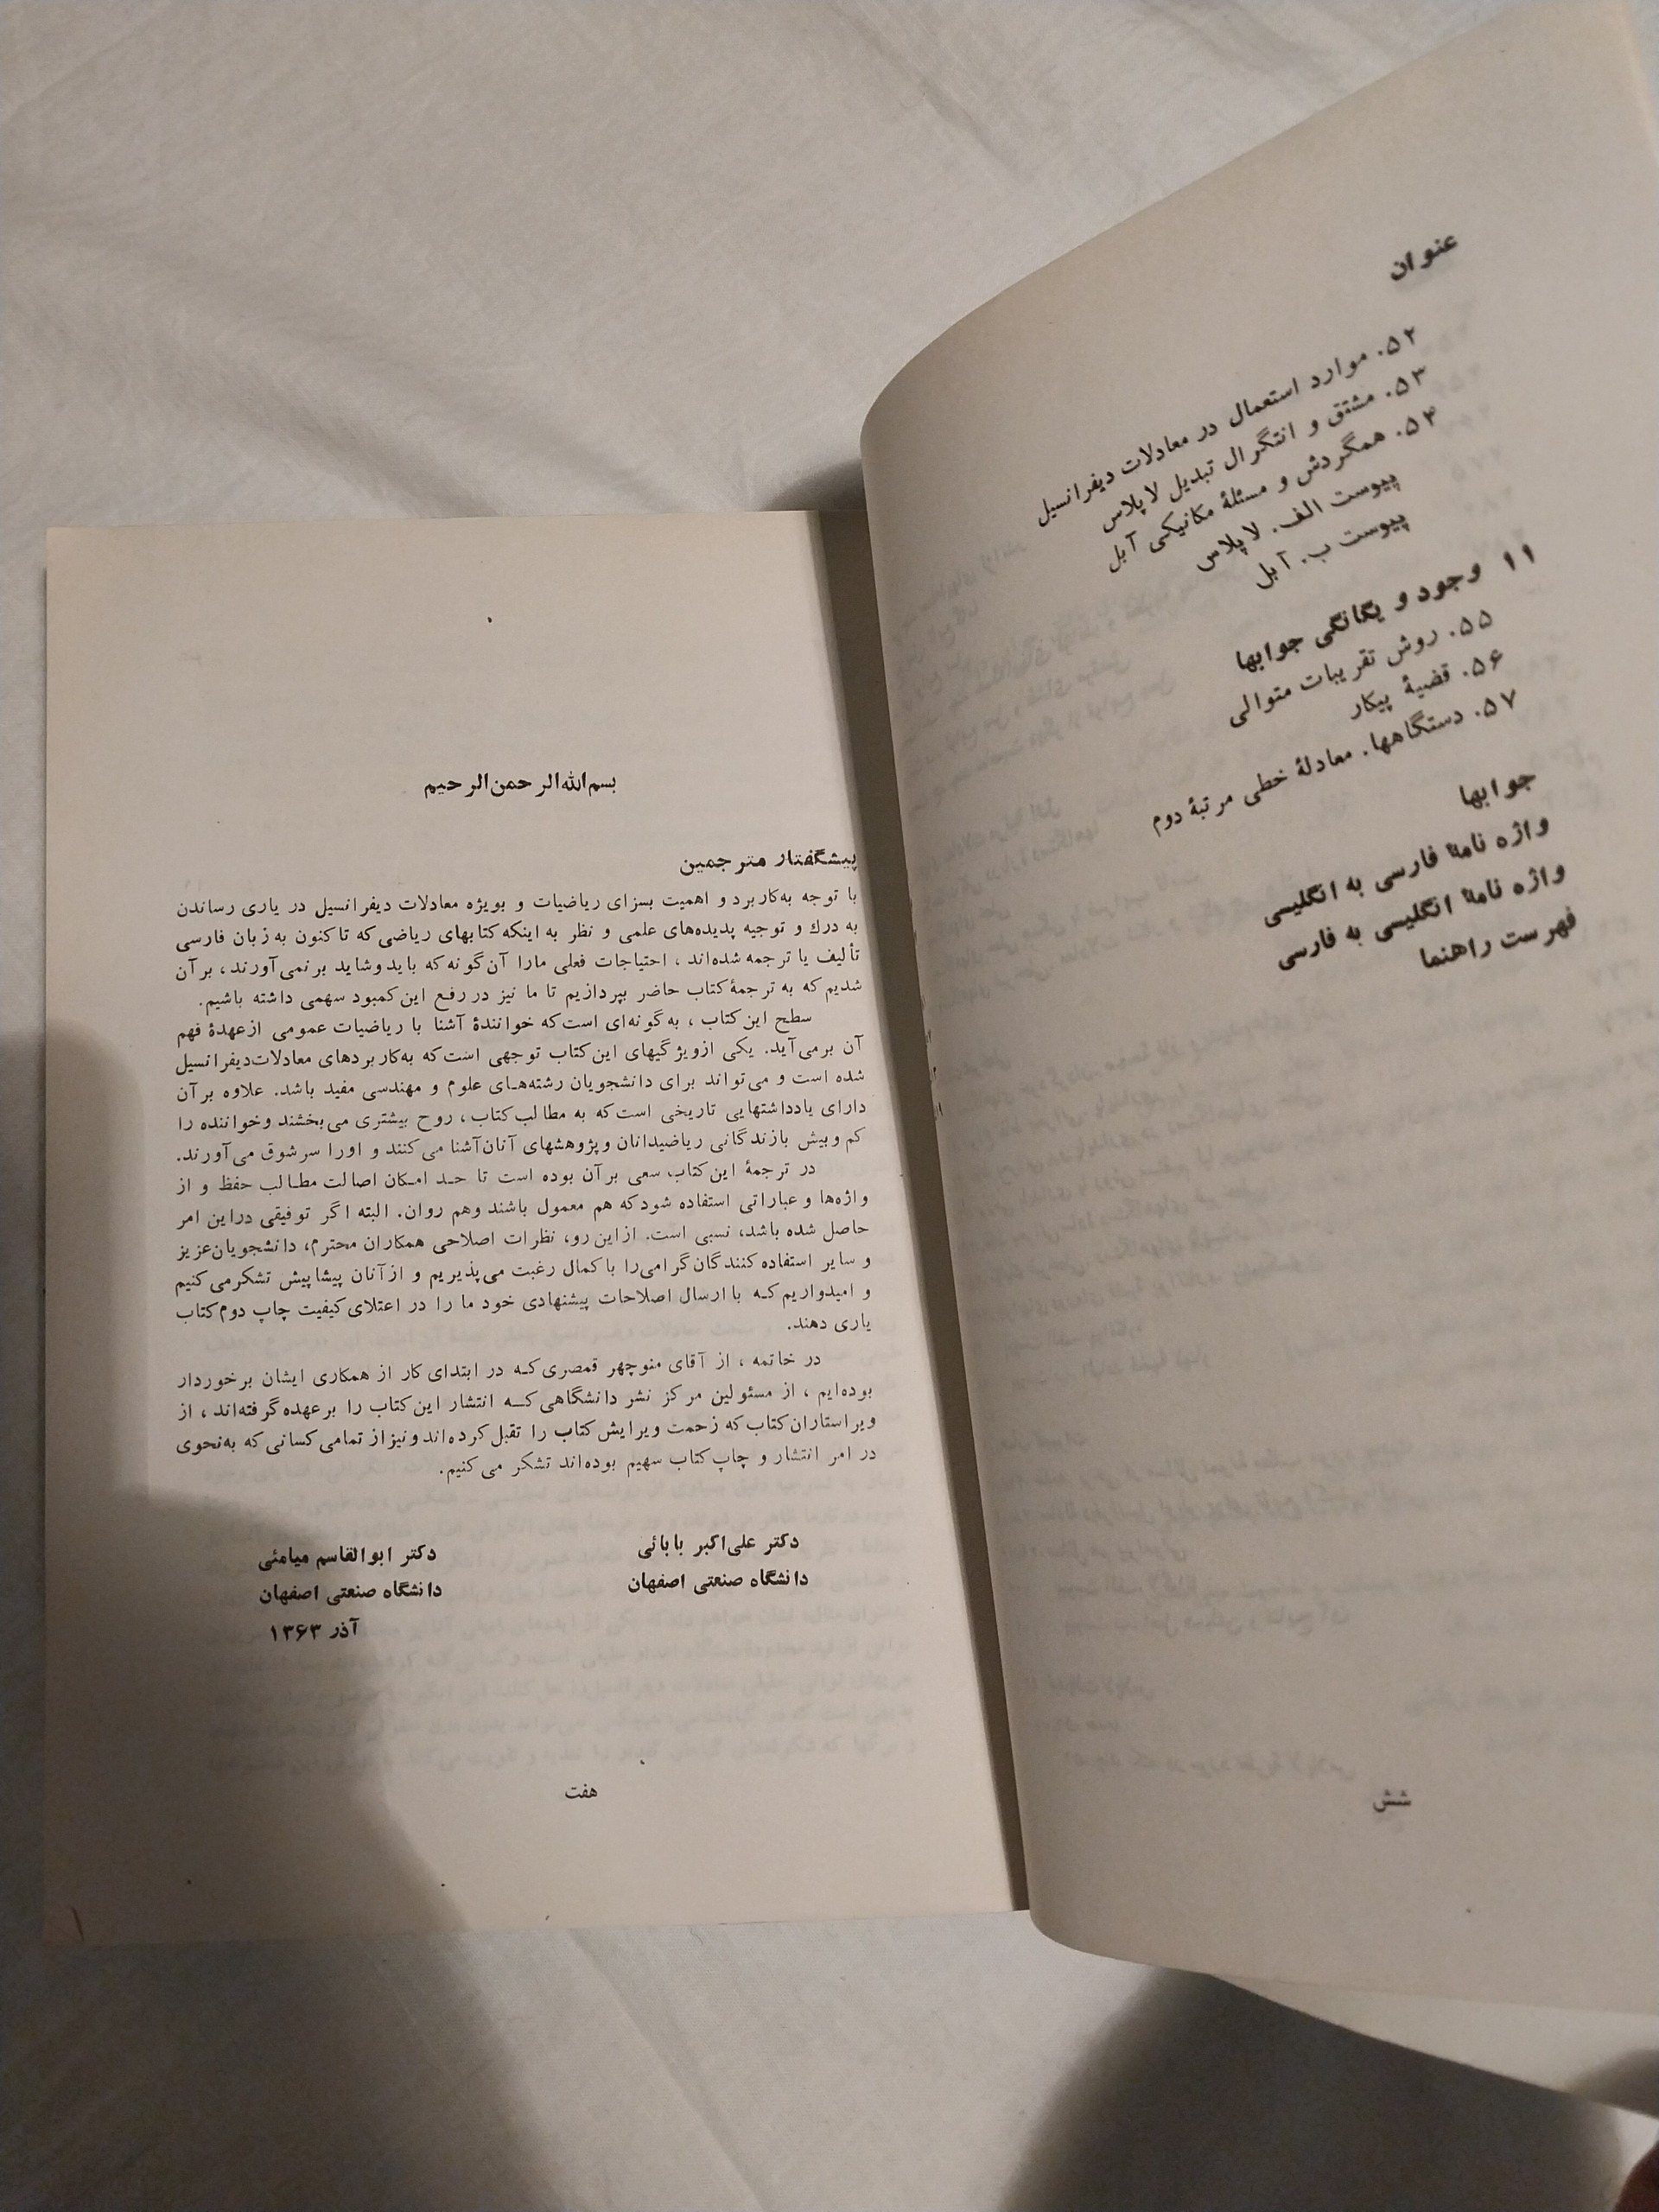 عنوان
۵۲. موارد استعمال در معادلات دیفرانسیل
۵۳. مشتق و انتگرال تبدیل لاپلاس
۵۴. همگردش و مسئلهٔ مکانیکی آبل
پیوست الف. لاپلاس
پیوست ب. آبل
۱۱ وجود و یگانگی جوابها
۵۵. روش تقریبات متوالی
۵۶. قضیهٔ پیکار
۵۷. دستگاهها. معادلهٔ خطی مرتبهٔ دوم
جوابها
واژه نامهٔ فارسی به انگلیسی
واژه نامهٔ انگلیسی به فارسی
فهرست راهنما
شش
بسم‌الله‌الرحمن‌الرحیم
پیشگفتار مترجمین
با توجه به‌کاربرد و اهمیت بسزای ریاضیات و بویژه معادلات دیفرانسیل در یاری رساندن
به درك و توجیه پدیده‌های علمی و نظر به اینکه کتابهای ریاضی که تاکنون به زبان فارسی
تألیف یا ترجمه شده‌اند ، احتیاجات فعلی مارا آن‌گونه که باید وشاید برنمی‌آورند، برآن
شدیم که به ترجمهٔ کتاب حاضر بپردازیم تا ما نیز در رفع این کمبود سهمی داشته باشیم.
سطح این کتاب ، به‌گونه‌ای است که خوانندهٔ آشنا با ریاضیات عمومی ازعهدهٔ فهم
آن برمی‌آید. یکی ازویژگیهای این کتاب توجهی است که به‌کاربردهای معادلات‌دیفرانسیل
شده است و می‌تواند برای دانشجویان رشته‌هـای علوم و مهندسی مفید باشد. علاوه برآن
دارای یادداشتهایی تاریخی است که به مطالب کتاب، روح بیشتری می‌بخشند وخواننده را
کم وبیش بازندگانی ریاضیدانان وپژوهشهای آنان‌آشنا می‌کنند و اورا سرشوق می‌آورند.
در ترجمهٔ این کتاب سعی برآن بوده است تا حـد امـکان اصالت مطـالب حفظ و از
واژه‌ها و عباراتی استفاده شود که هم معمول باشند وهم روان. البته اگر توفیقی دراین امر
حاصل شده باشد، نسبی است. ازاین رو، نظرات اصلاحی همکاران محترم، دانشجویان‌عزیز
و سایر استفاده کنندگان گرامی‌را باکمال رغبت می‌پذیریم و ازآنان پیشاپیش تشکرمی‌کنیم
و امیدواریم کـه با ارسال اصلاحات پیشنهادی خود ما را در اعتلای کیفیت چاپ دوم کتاب
یاری دهند.
در خاتمه ، از آقای منوچهر قمصری کـه در ابتدای کار از همکاری ایشان برخوردار
بوده‌ایم ، از مسئولین مرکز نشر دانشگاهی کـه انتشار این کتاب را برعهده گرفته‌اند ، از
ویراستاران کتاب که زحمت ویرایش کتاب را تقبل کرده‌اند ونیزاز تمامی کسانی که به‌نحوی
در امر انتشار و چاپ کتاب سهیم بوده‌اند تشکر می‌کنیم.
دکتر علی‌اکبر بابائی
دانشگاه صنعتی اصفهان
دکتر ابوالقاسم میامئی
دانشگاه صنعتی اصفهان
آذر ۱۳۶۳
هفت